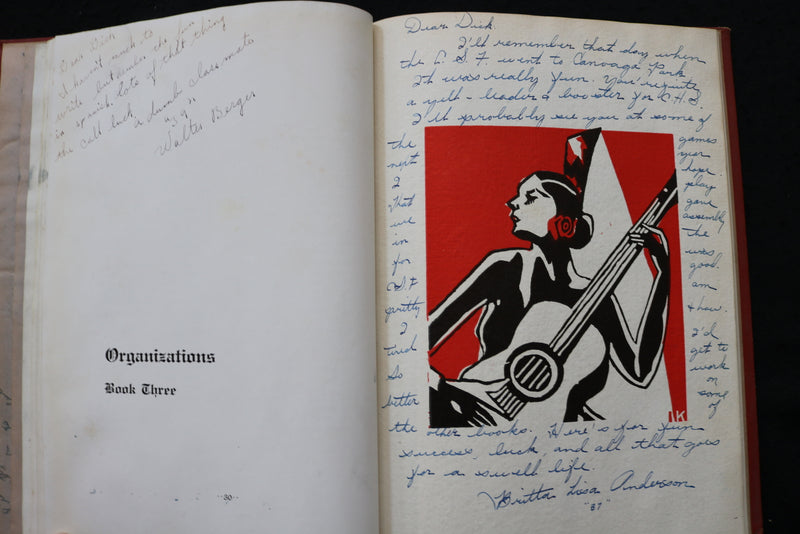 Dear Dick
I haven't much to
write but the fun
in spanish. lots of that thing
the call luck.
a dumb classmate
"39"
Walter Berger
Organizations
Book Three
"30"
Dear Dick.
I'll remember that day when
the C. S. F. went to Canoaga Park
It was really fun. You're quite
a yell-leader & booster for C.H.S.
I'll probably see you at some of
the games
next year
I hope.
That play
we gave
in assembly
for the
C.S.F was
pretty good.
I am
tired & how.
So I'd
better get to
work
on
some
of
the other books. Here's for fun
success, luck, and all that goes
for a swell life.
Britta Lisa Anderson
"37"
IK